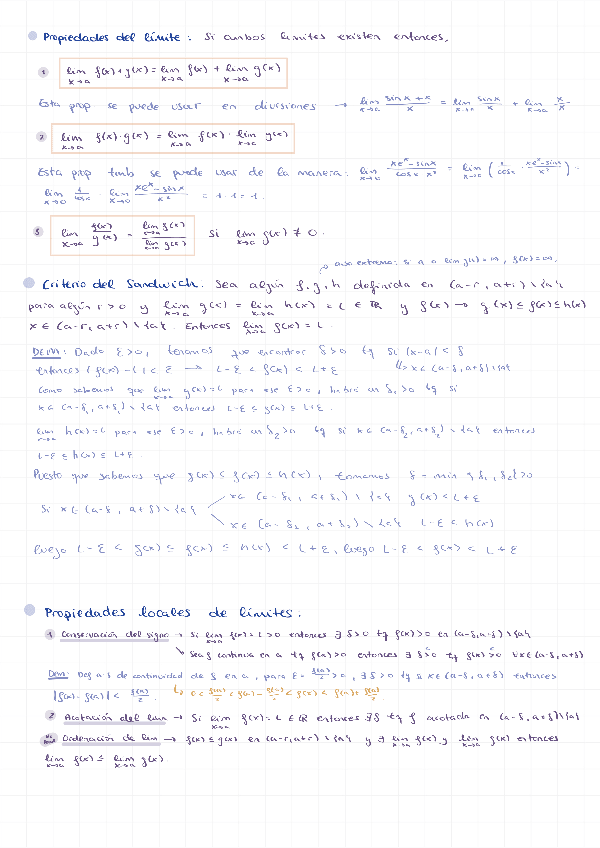 Propiedades del límite: Si ambos límites existen entonces,
1 lim x→a f(x)+g(x) = lim x→a f(x) + lim x→a g(x)
Esta prop se puede usar en divisiones → lim x→0 (sin x + x)/x = lim x→0 sin x/x + lim x→0 x/x
2 lim x→a f(x)·g(x) = lim x→a f(x) · lim x→a g(x)
Esta prop tmb se puede usar de la manera: lim x→0 (xe^x - sin x)/(cos x · x²) = lim x→0 (1/cos x · (xe^x - sin x)/x²) =
lim x→0 1/cos x · lim x→0 (xe^x - sin x)/x² = 1·1 = 1.
3 lim x→a f(x)/g(x) = lim x→a f(x) / lim x→a g(x) si lim x→a g(x) ≠ 0.
caso extremo: si lim g(x) = ∞, f(x) = ∞.
Criterio del Sandwich. Sea algún f, g, h definida en (a-r, a+r) \ {a}
para algún r > 0 y lim x→a g(x) = lim x→a h(x) = L ∈ ℝ y f(x) → g(x) ≤ f(x) ≤ h(x)
x ∈ (a-r, a+r) \ {a}. Entonces lim x→a f(x) = L.
DEM: Dado ε > 0, tenemos que encontrar δ > 0 tq si |x-a| < δ
entonces |f(x) - L| < ε → L-ε < f(x) < L+ε ↳ x ∈ (a-δ, a+δ) \ {a}
Como sabemos que lim x→a g(x) = L para ese ε > 0, habrá un δ₁ > 0 tq si
x ∈ (a-δ₁, a+δ₁) \ {a} entonces L-ε ≤ g(x) ≤ L+ε.
lim x→a h(x) = L para ese ε > 0, habrá un δ₂ > 0 tq si x ∈ (a-δ₂, a+δ₂) \ {a} entonces
L-ε ≤ h(x) ≤ L+ε.
Puesto que sabemos que g(x) ≤ f(x) ≤ h(x), tomamos δ = min {δ₁, δ₂} > 0
x ∈ (a-δ₁, a+δ₁) \ {a} g(x) < L+ε
Si x ∈ (a-δ, a+δ) \ {a}
x ∈ (a-δ₂, a+δ₂) \ {a} L-ε < h(x)
Luego L-ε < g(x) ≤ f(x) ≤ h(x) < L+ε, luego L-ε < f(x) < L+ε
Propiedades locales de límites.
1 Conservación del signo → Si lim x→a f(x) = L > 0 entonces ∃ δ > 0 tq f(x) > 0 en (a-δ, a+δ) \ {a}
Sea f continua en a tq f(a) > 0 entonces ∃ δ > 0 tq f(x) > 0 ∀x ∈ (a-δ, a+δ)
Dem: Def a·s de continuidad de f en a, para ε = f(a)/2 > 0, ∃ δ > 0 tq si x ∈ (a-δ, a+δ) entonces
|f(x) - f(a)| < f(a)/2. ↳ 0 < f(a)/2 = f(a) - f(a)/2 < f(x) < f(a) + f(a)/2
2 Acotación del lim → Si lim x→a f(x) = L ∈ ℝ entonces ∃ δ tq f acotada en (a-δ, a+δ) \ {a}
Ordenación de lim → f(x) ≤ g(x) en (a-r, a+r) \ {a} y ∃ lim x→a f(x) y lim x→a g(x) entonces
lim x→a f(x) ≤ lim x→a g(x)